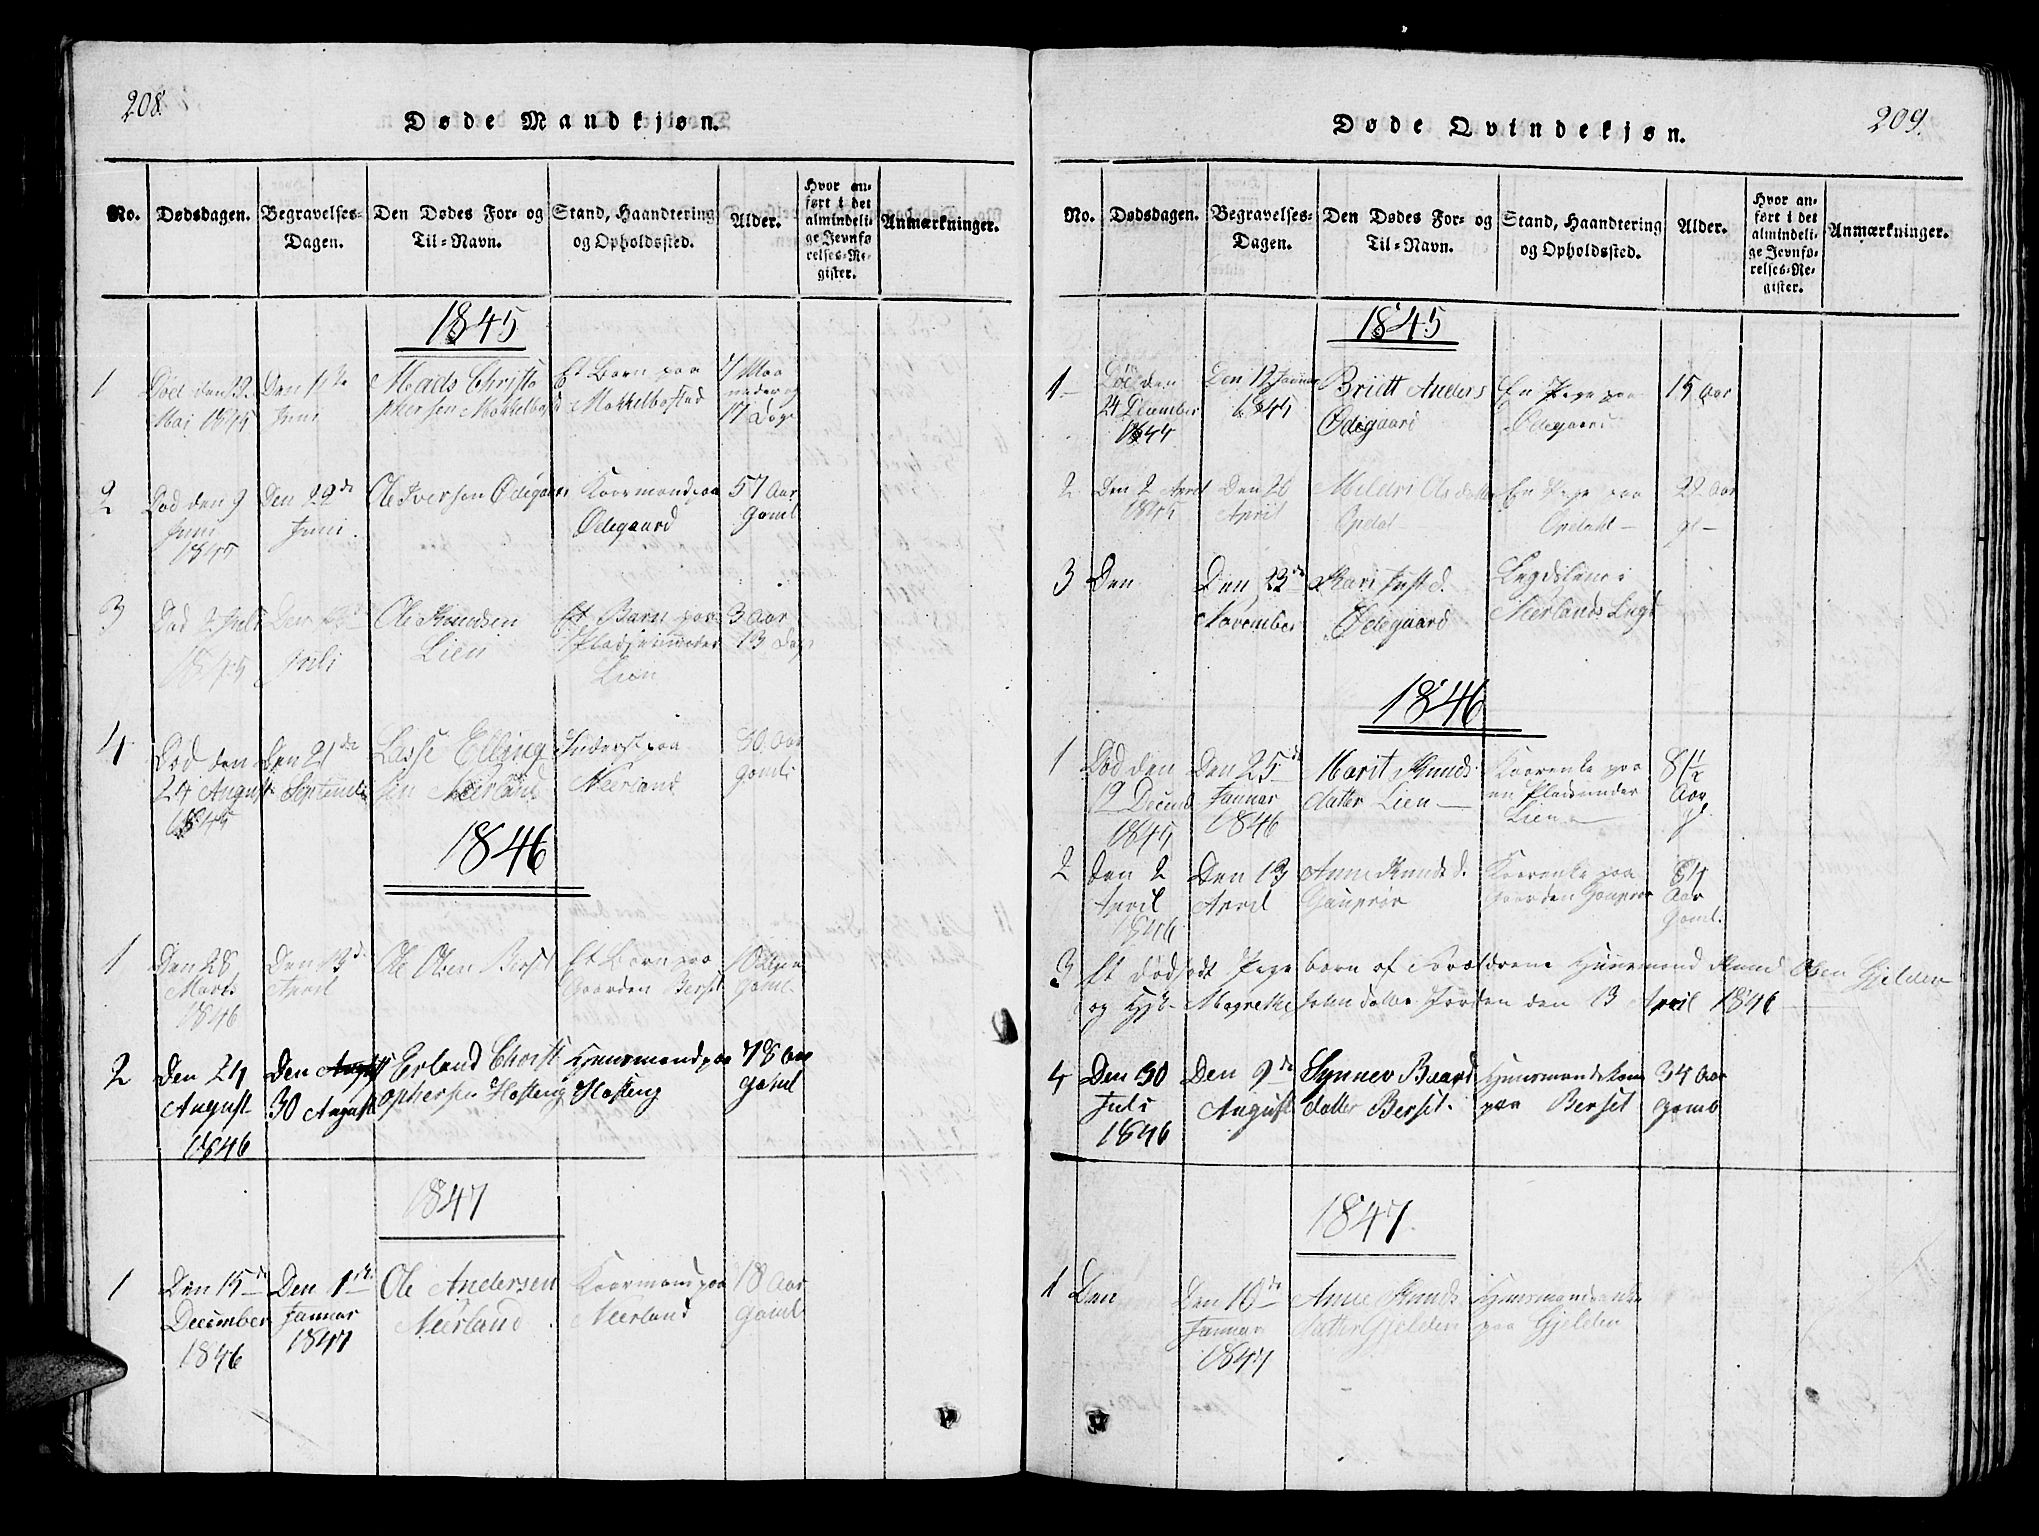 208.
Døde Mandkjøn.
No.
Dødsdagen.
Begravelses-
Dagen.
Den Dødes For- og
Til-Navn.
Stand, Haandtering
og Opholdssted.
Alder.
Hvor an-
ført i det
almindeli-
ge Jevnfø
relses-Re-
gister.
Anmærkninger.
1845
1
Død den
Mai 1845
Den
Juni
Mads Christo
Et Barn paa
Mokkelbosted
7 Maa
neder og
17 Dage
2
Død den 9
Juni
1845
Den 29de
Juni
Ole Iversen Ødegaard
Kaarmand paa
Ødegaard
57 Aar
Gaml
3
Død 2 Juli
1845
Den
Juli
Ole Knudsen
Lien
Et Barn paa
Pladsen under
Lien
3 Aar
13 Dage
4
Død den
24 August
1845
Den 21de
September
Lasse Elling
sen Neerland
Inderst paa
Neerland
30 Aar
Gaml
1846
1
Den 28
Marts
1846
Den 13de
April
Ole Olsen Berset
Et Barn paa
Gaarden Berset
Gaml.
2
Den 24
August
1846
Den August
30 August
Erland Christ
ophersen Hosteng
Huusmand paa
Hosteng
78 Aar
Gaml
1847
1
Den 15de
December
1846
Den 1ste
Januar
1847
Ole Andersen
Neerland
Kaarmand paa
Neerland
Aar
Gaml
209.
Døde Qvindekjøn.
No.
Dødsdagen.
Begravelses-
Dagen.
Den Dødes For- og
Til-Navn.
Stand, Haandtering
og Opholdssted.
Alder.
Hvor an-
ført i det
almindeli-
ge Jevnfø-
relses-Re-
gister.
Anmærkninger.
1845
1
Død den
24 December
1844
Den 12 Januar
1845
Briett Anders
Ødegaard
En Pige paa
Ødegaard
15 Aar
2
Den 2 April
1845
Den 26
April
Mildri Olsdatter
Opdal
En Pige paa
Opdahl
22 Aar
gl
3
Den
Den 23de
November
Kari
Ødegaard
Legdslem i
Neerlands Legd
1846
1
Død den
19 Decemb
1845
Den 25de
Januar
1846
Marit Knuds
datter Lien
Kaarenke paa
en Plads under
Lien
81 1/2
Aar
gl
2
Den 2
April
1846
Den 13
April
Anne Knudsd.
Gauprør
Kaarenke paa
Gaarden Gauprør
Aar
Gaml.
3
Et dødfødt Pigebarn af Forældrene Huusmand Knud Olsen Gjelden
og Hst. Magrethe den 13 April 1846
4
Den 30
Juli
1846
Den 9de
August
Synnev Baard
datter Berset.
Huusmandskone
paa Berset
34 Aar
Gaml
1847.
1
Den
Den 10de
Januar
1847
Anne Knuds
datter Gjelden
Huusmandsenke
paa Gjelden